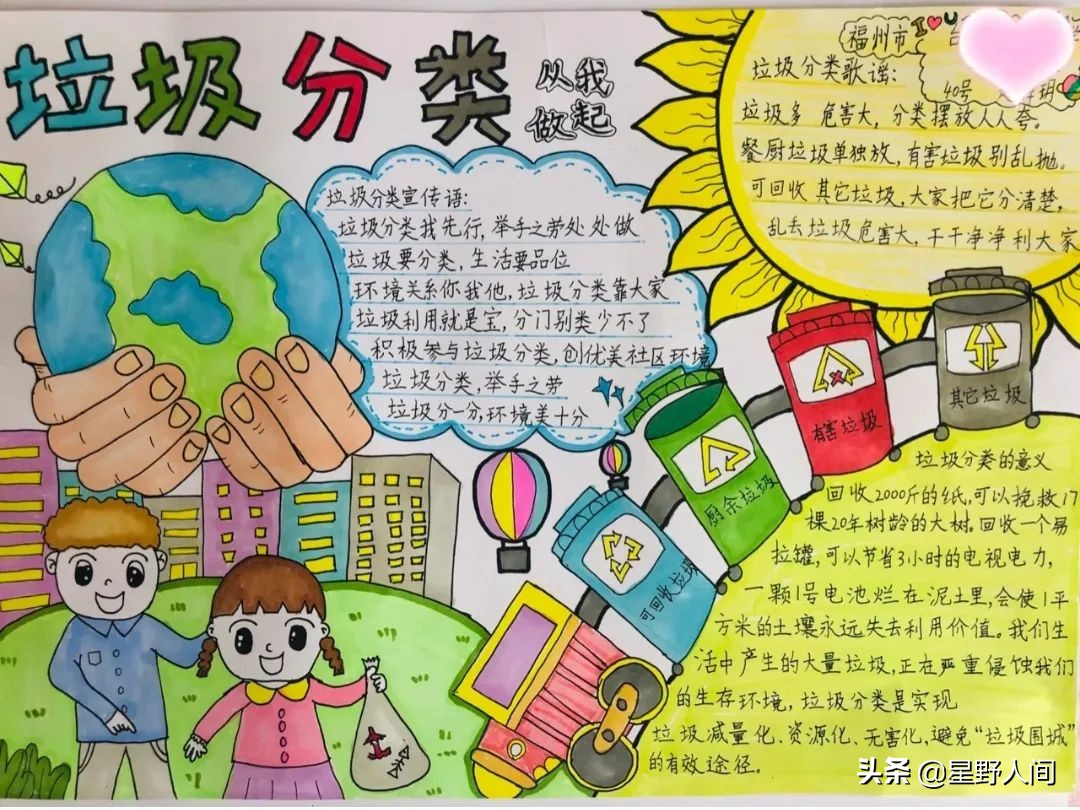 垃圾分类
从我
做起
福州市
40号
垃圾分类歌谣:
垃圾多 危害大,分类摆放人人夸。
餐厨垃圾单独放,有害垃圾别乱抛。
可回收其它垃圾,大家把它分清楚,
乱丢垃圾危害大,干干净净利大家
垃圾分类宣传语:
垃圾分类我先行,举手之劳处处做
垃圾要分类,生活要品位
环境关系你我他,垃圾分类靠大家
垃圾利用就是宝,分门别类少不了
积极参与垃圾分类,创优美社区环境
垃圾分类,举手之劳
垃圾分一分,环境美十分
可回收垃圾
厨余垃圾
有害垃圾
其它垃圾
垃圾分类的意义
回收2000斤的纸,可以挽救17
棵20年树龄的大树。回收一个易
拉罐,可以节省3小时的电视电力,
一颗1号电池烂在泥土里,会使1平
方米的土壤永远失去利用价值。我们生
活中产生的大量垃圾,正在严重侵蚀我们
的生存环境,垃圾分类是实现
垃圾减量化、资源化、无害化,避免“垃圾围城”
的有效途径。
头条 @星野人间